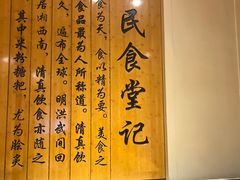 民食堂记
食为天，食以精为要。美食之
食品最为人所称道。清真饮
久，遍布全球。明洪武年间回
居湘西南，清真饮食亦随之
其中米粉糍粑，尤为脍炙